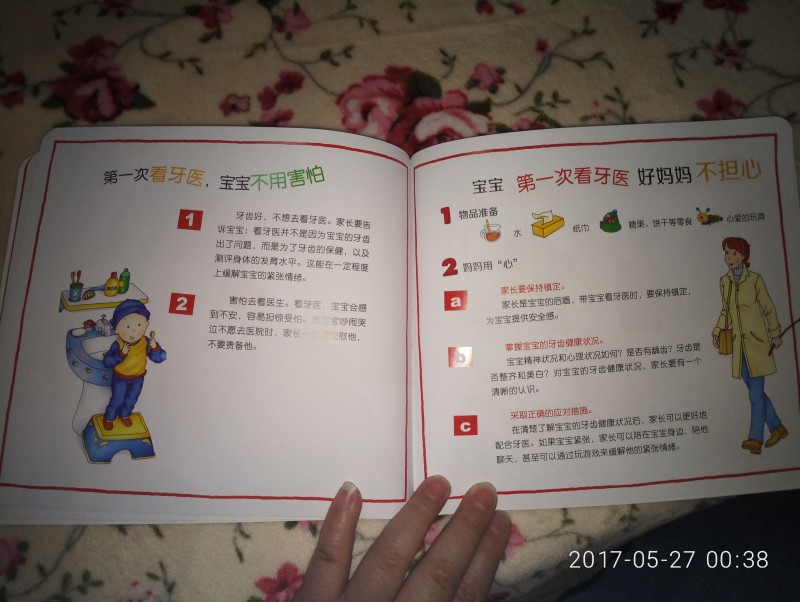 第一次看牙医，宝宝不用害怕
1
牙齿好，不想去看牙医。家长要告
诉宝宝：看牙医并不是因为宝宝的牙齿
出了问题，而是为了牙齿的保健，以及
测评身体的发育水平。这能在一定程度
上缓解宝宝的紧张情绪。
2
害怕去看医生。看牙医，宝宝会感
到不安，容易担惊受怕。当宝宝吵闹哭
泣不愿去医院时，家长一
慰他，
不要责备他。
宝宝 第一次看牙医 好妈妈 不担心
1 物品准备
水 纸巾 糖果、饼干等零食 心爱的玩具
2 妈妈用“心”
a 家长要保持镇定。
家长是宝宝的后盾，带宝宝看牙医时，要保持镇定，
为宝宝提供安全感。
b 掌握宝宝的牙齿健康状况。
宝宝精神状况和心理状况如何？是否有龋齿？牙齿是
否整齐和美白？对宝宝的牙齿健康状况，家长要有一个
清晰的认识。
c 采取正确的应对措施。
在清楚了解宝宝的牙齿健康状况后，家长可以更好地
配合牙医。如果宝宝紧张，家长可以陪在宝宝身边，陪他
聊天，甚至可以通过玩游戏来缓解他的紧张情绪。
2017-05-27 00:38